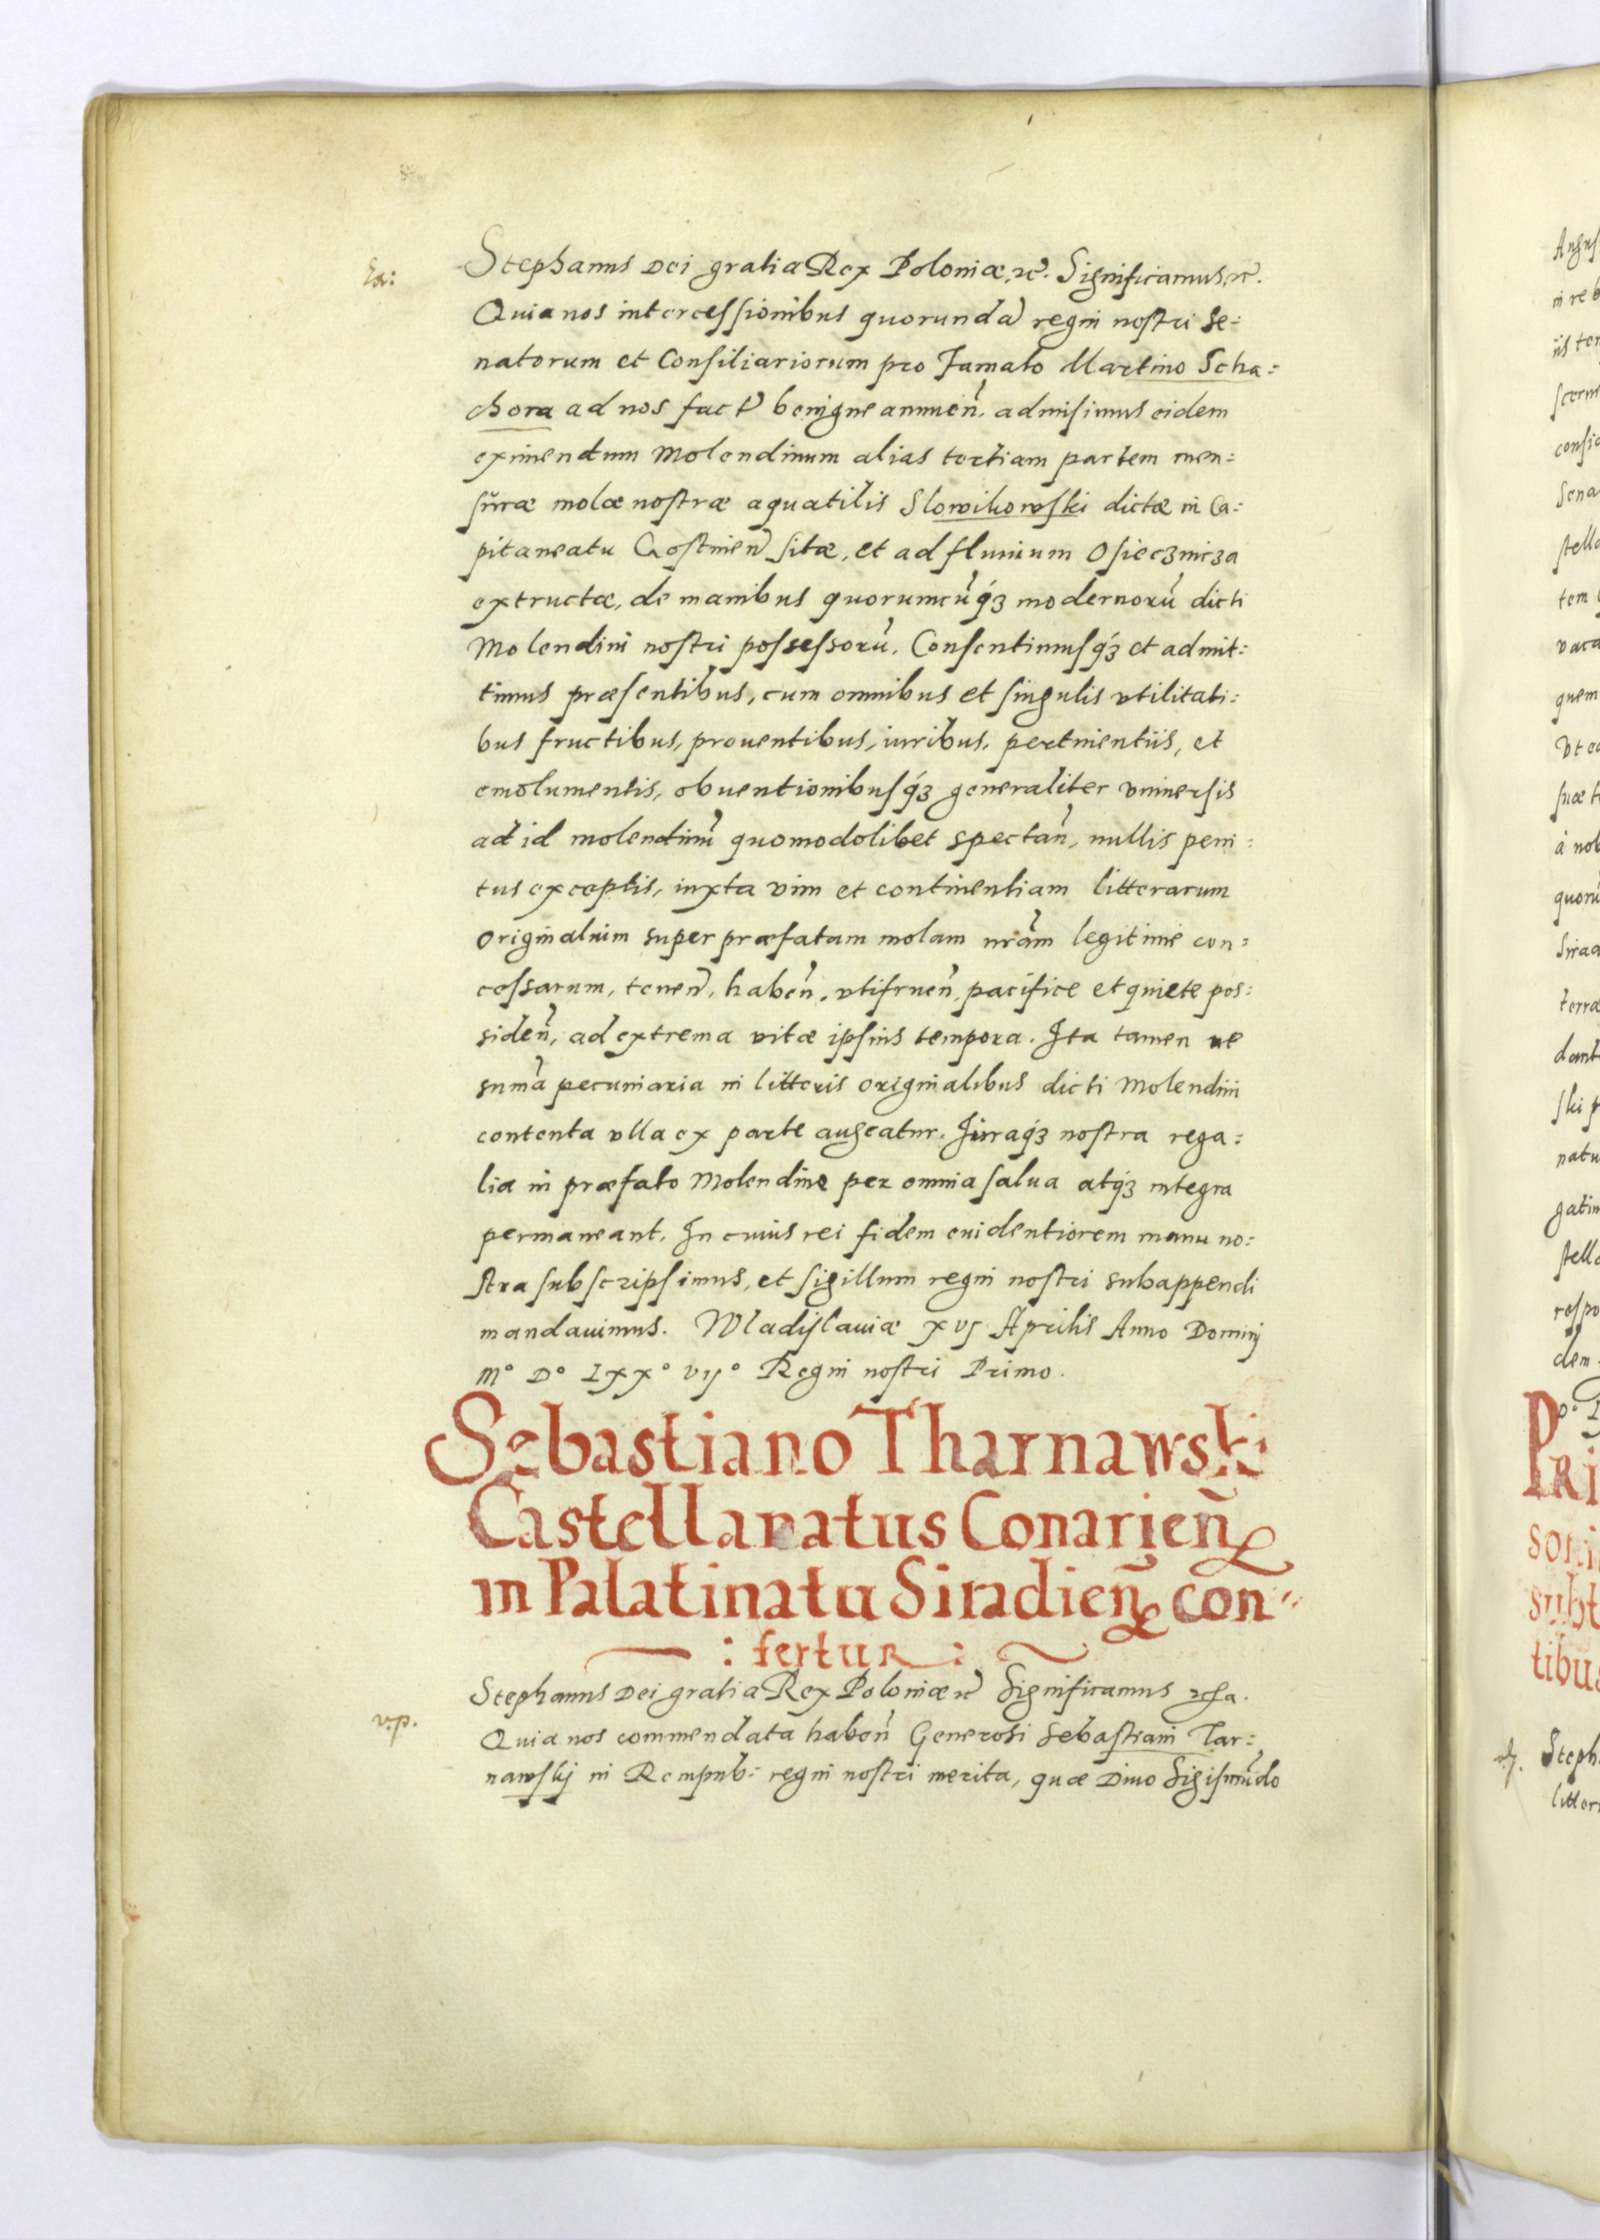 Stephanus Dei gratia Rex Poloniæ, etc. Significamus, etc.
Quia nos intercessionibus quorundã regni nostri Se:
natorum et Consiliariorum pro Famato Martino Scha:
chora ad nos fact̃ benigne annueñ. admisimus eidem
eximendum Molendinum alias tertiam partem men:
suræ molæ nostræ aquatilis Slowikowski dictæ in Ca:
pitaneatu Gostineñ sitæ, et ad fluuium Osiecznicza
extructæ, de manibus quorumcũq́ʒ modernorũ dicti
Molendini nostri possessorũ. Consentimusq́ʒ et admit:
timus præsentibus, cum omnibus et singulis vtilitati:
bus fructibus, prouentibus, iuribus, pertinentiis, et
emolumentis, obuentionibusq́ʒ generaliter vniuersis
ad id molendinũ quomodolibet spectañ, nullis peni:
tus exceptis, iuxta vim et continentiam litterarum
originalium super præfatam molam nrãm legitime con:
cessarum, teneñ, habeñ, vtifrueñ, pacifice et quiete pos:
sideñ, ad extrema vitæ ipsius tempora. Ita tamen ne
sum̃a pecuniaria in litteris originalibus dicti Molendini
contenta vlla ex parte augeatur. Juraq́ʒ nostra rega:
lia in præfato Molendino per omnia salua atq́ʒ integra
permaneant. In cuius rei fidem euidentiorem manu no:
stra subscripsimus, et sigillum regni nostri subappendi
mandauimus. Wladislauiæ xvj Aprilis Anno Domini
M° D° Lxx° vij° Regni nostri Primo.
Sebastiano Tharnawski
Castellanatus Conarieñ
in Palatinatu Siradieñ con
: fertur :
Stephanus Dei gratia Rex Poloniæ etc Significamus etc.
v.p.
Quia nos commendata habeñ Generosi Sebastiani Tar:
nawskj in Rempub: regni nostri merita, quæ Diuo Sigismũdo